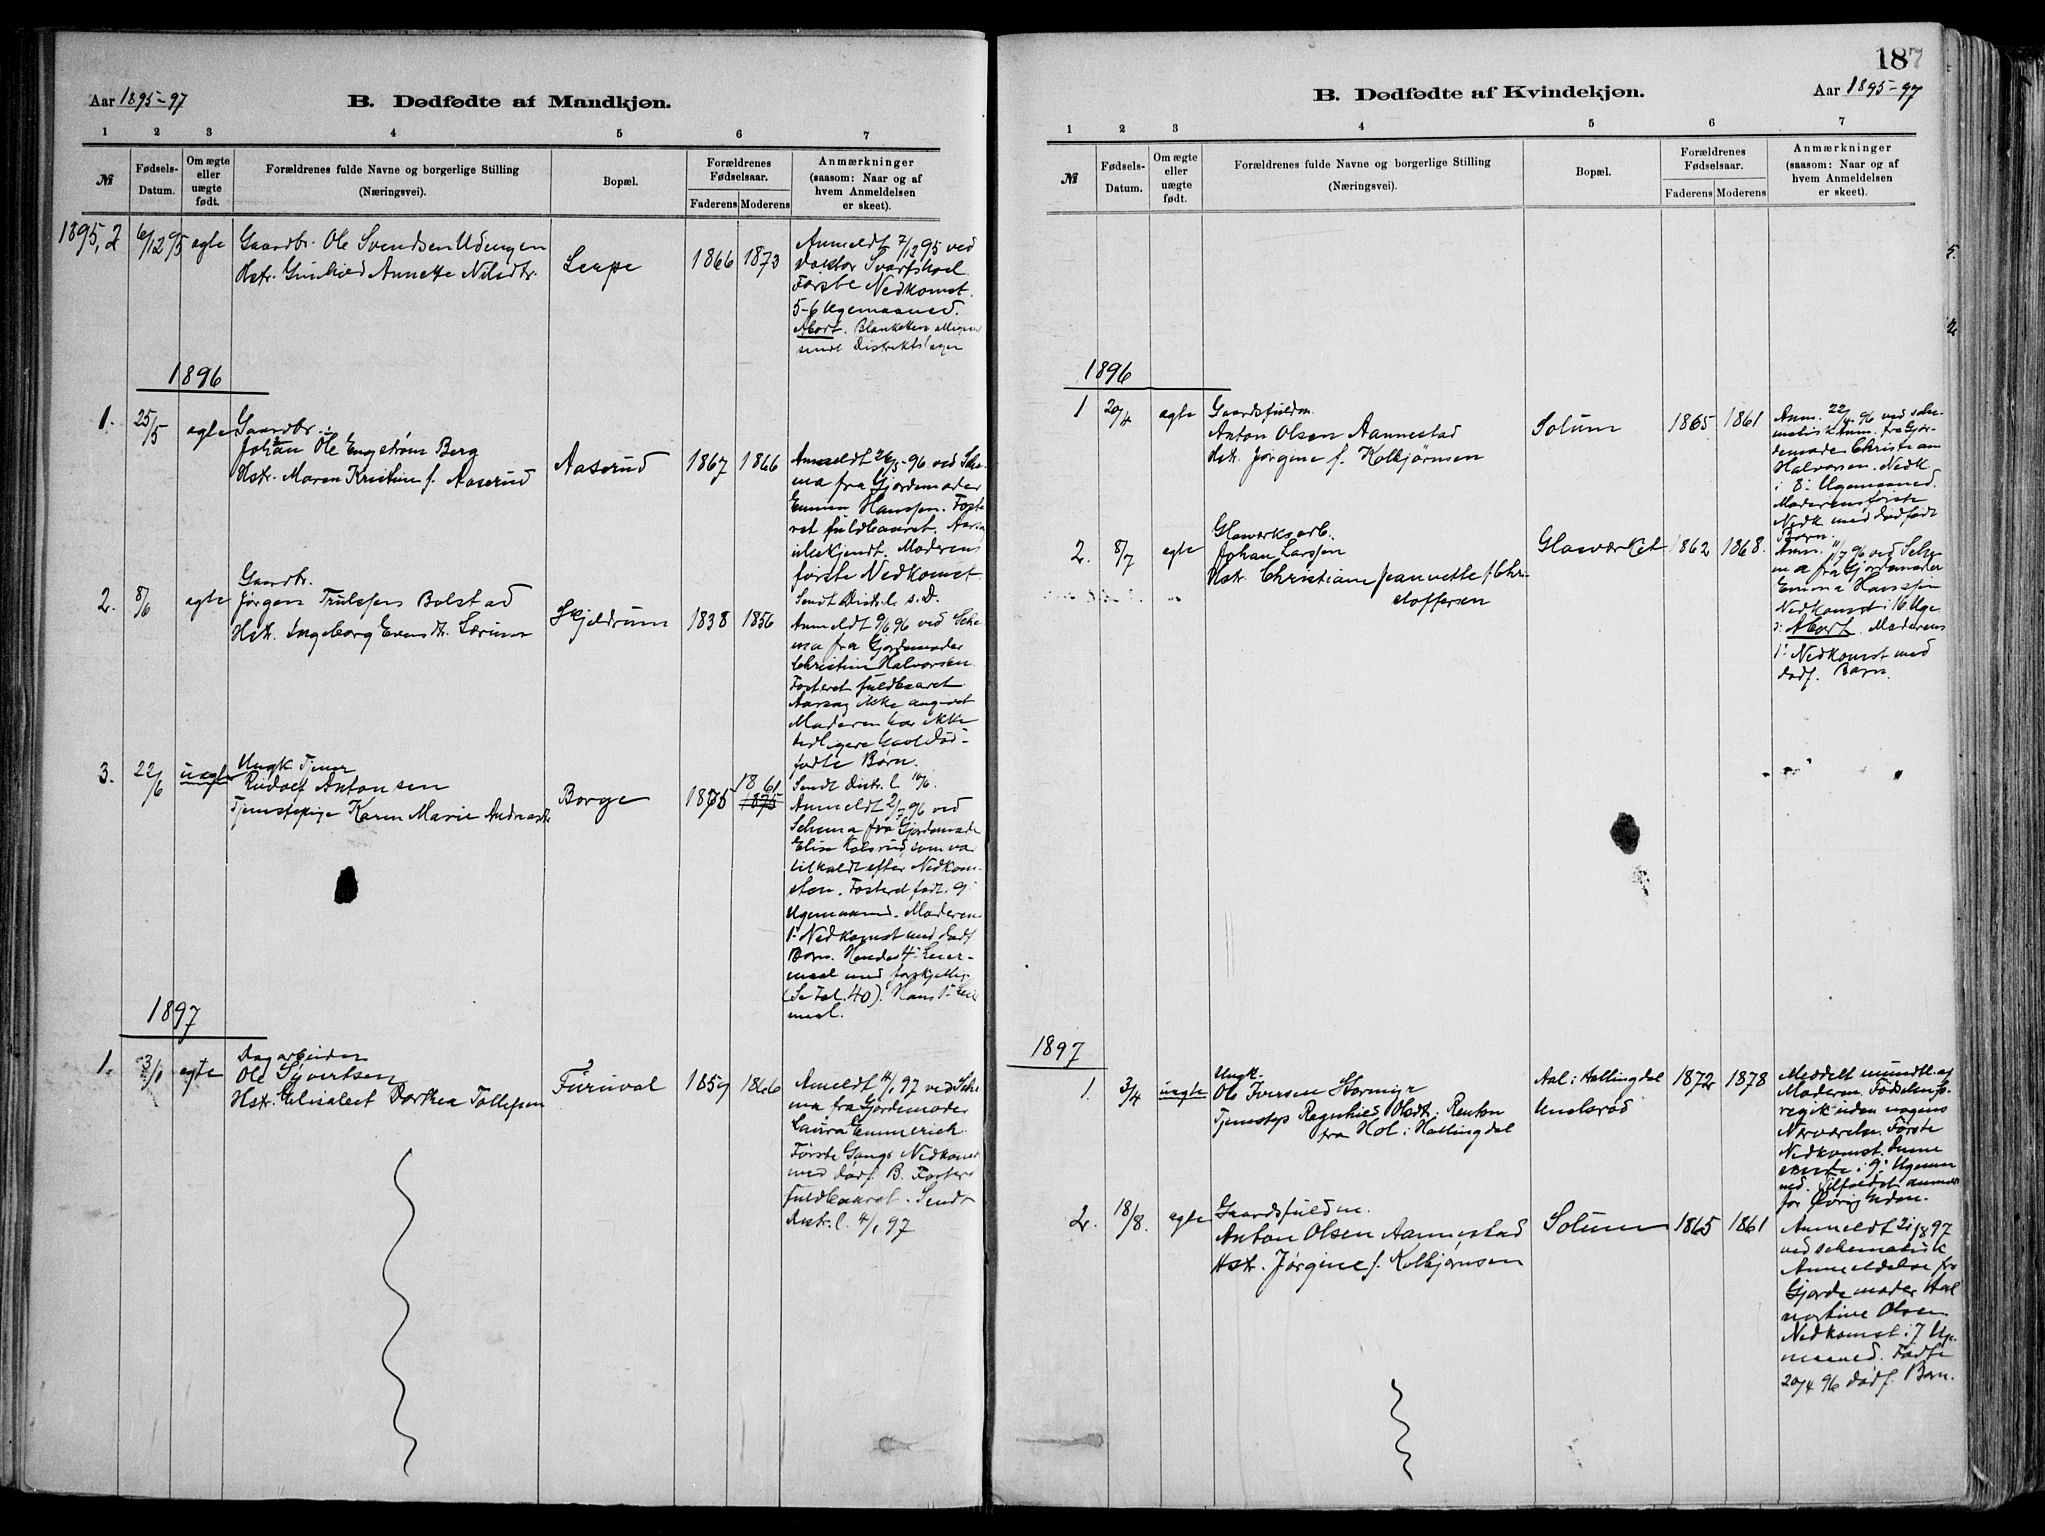 Aar 1895-97
B. Dødfødte af Mandkjøn.
1 2 3 4 5 6 7
№
Fødsels-
Datum.
Om ægte
eller
uægte
født.
Forældrenes fulde Navne og borgerlige Stilling
(Næringsvei).
Bopæl.
Forældrenes
Fødselsaar.
Faderens Moderens
Anmærkninger
(saasom: Naar og af
hvem Anmeldelsen
er skeet).
1895, 2 6/12 95 ægte
Gaardbr. Ole Svendsen
Hstr. Gunhild Annette Nilsdtr.
Lerpe 1866 1873
Anmeldt 7/12 95 ved
Doktor
Første Nedkomst.
5-6 Ugemaaned.
Abort. Blanketten
sendt Distriktslægen
1896
1. 25/5 ægte
Gaardbr.
Johan Ole Engstrøm Berg
Hstr. Maren Kristine f. Aaserud
Aaserud 1867 1866
Anmeldt 26/5 -96 ved Sche-
ma fra Gjordemoder
Emma Hanssen. Foste-
ret fuldbaaret. Aarsag
ubekjendt. Moderens
første Nedkomst.
Sendt Distr.l. s. D.
2. 8/6 ægte
Gaardbr.
Jørgen Trulssen Bolstad
Hstr. Ingeborg Evensdtr. Lerum
Skjeldrum 1838 1856
Anmeldt 9/6 96 ved Sche-
ma fra Gjordemoder
Christine Halvorsen.
Fosteret fuldbaaret.
Aarsag ikke angivet
Moderen har ikke
tidligere havt Død-
fødte Børn.
Sendt Distr. l. 10/6.
3. 22/6 uægte
Ungk. Tjener
Rudolf Antonsen
Tjenestepige Karen Marie Andreasdtr
Borge 1875 1861
1875
Anmeldt 2/7 96 ved
Schema fra Gjordemoder
Elise Kolsrud, som var
tilkaldt efter Nedkom-
sten. Fosteret født. 9.
Ugemaaned. Moderens
1. Nedkomst med dødf.
Barn. Hendes 4. Leier-
maal med forskjellig
(Se Fol. 40). Hans 1. Leier
maal.
1897
1. 3/1 ægte
Dagarbeider
Ole Syvertsen
Hstr. Elisabet Dorthea Tollefsen
Furuval 1859 1866
Anmeldt 4/1 97 ved Sche-
ma fra Gjordemoder
Laura Emmerich.
Første Gangs Nedkomst
med dødf. B. Fosteret
fuldbaaret. Sendt
Distr. l. 4/1 97
187
B. Dødfødte af Kvindekjøn.
Aar 1895-97
1 2 3 4 5 6 7
№
Fødsels-
Datum.
Om ægte
eller
uægte
født.
Forældrenes fulde Navne og borgerlige Stilling
(Næringsvei).
Bopæl.
Forældrenes
Fødselsaar.
Faderens Moderens
Anmærkninger
(saasom: Naar og af
hvem Anmeldelsen
er skeet).
1896
1 20/4 ægte
Gaardsfuldm.
Anton Olsen Aannestad
Hstr. Jørgine f. Kolbjørnsen
Solum 1865 1861
Anm. 22/4 96 ved sche-
matisk Anm. fra Gjor-
demoder Christiane
Halvorsen. Nedk.
i 8. Ugemaaned.
Moderens første
Nedk. med dødfødt
Barn.
2. 8/7 ægte
Glasværksarb.
Johan Larssen
Hstr. Christiane Jeanette f. Chri-
stoffersen
Glasværket 1862 1868.
Anm. 11/7 96 ved Sche-
ma fra Gjordemoder
Emma Hanssen
Nedkomst i 16 Uge
Abort. Moderens
1. Nedkomst med
dødf. Barn.
1897
1. 3/4 uægte
Ungk.
Ole Iversen
Tjenestep. Ragnhild Olsdtr.
fra Hol i Hallingdal
Aal i Hallingdal
Undsrød
1872 1878
Meddelt mundtl. af
Moderen. Fødselen fo-
regik uden nogens
Nærværelse. Første
Nedkomst.
i 9. Ugemaa-
ned. Tilfældet anmeldt
for
2. 18/8. ægte
Gaardsfuldm.
Anton Olsen Aannestad
Hstr. Jørgine f. Kolbjørnsen
Solum 1865 1861
Anmeldt 21/8 97
ved schematisk
Anmeldelse fra
Gjordemoder
Olsen.
Nedkomst i 7 Ug-
maaned. Fødte
20/4 96 dødf. Barn.